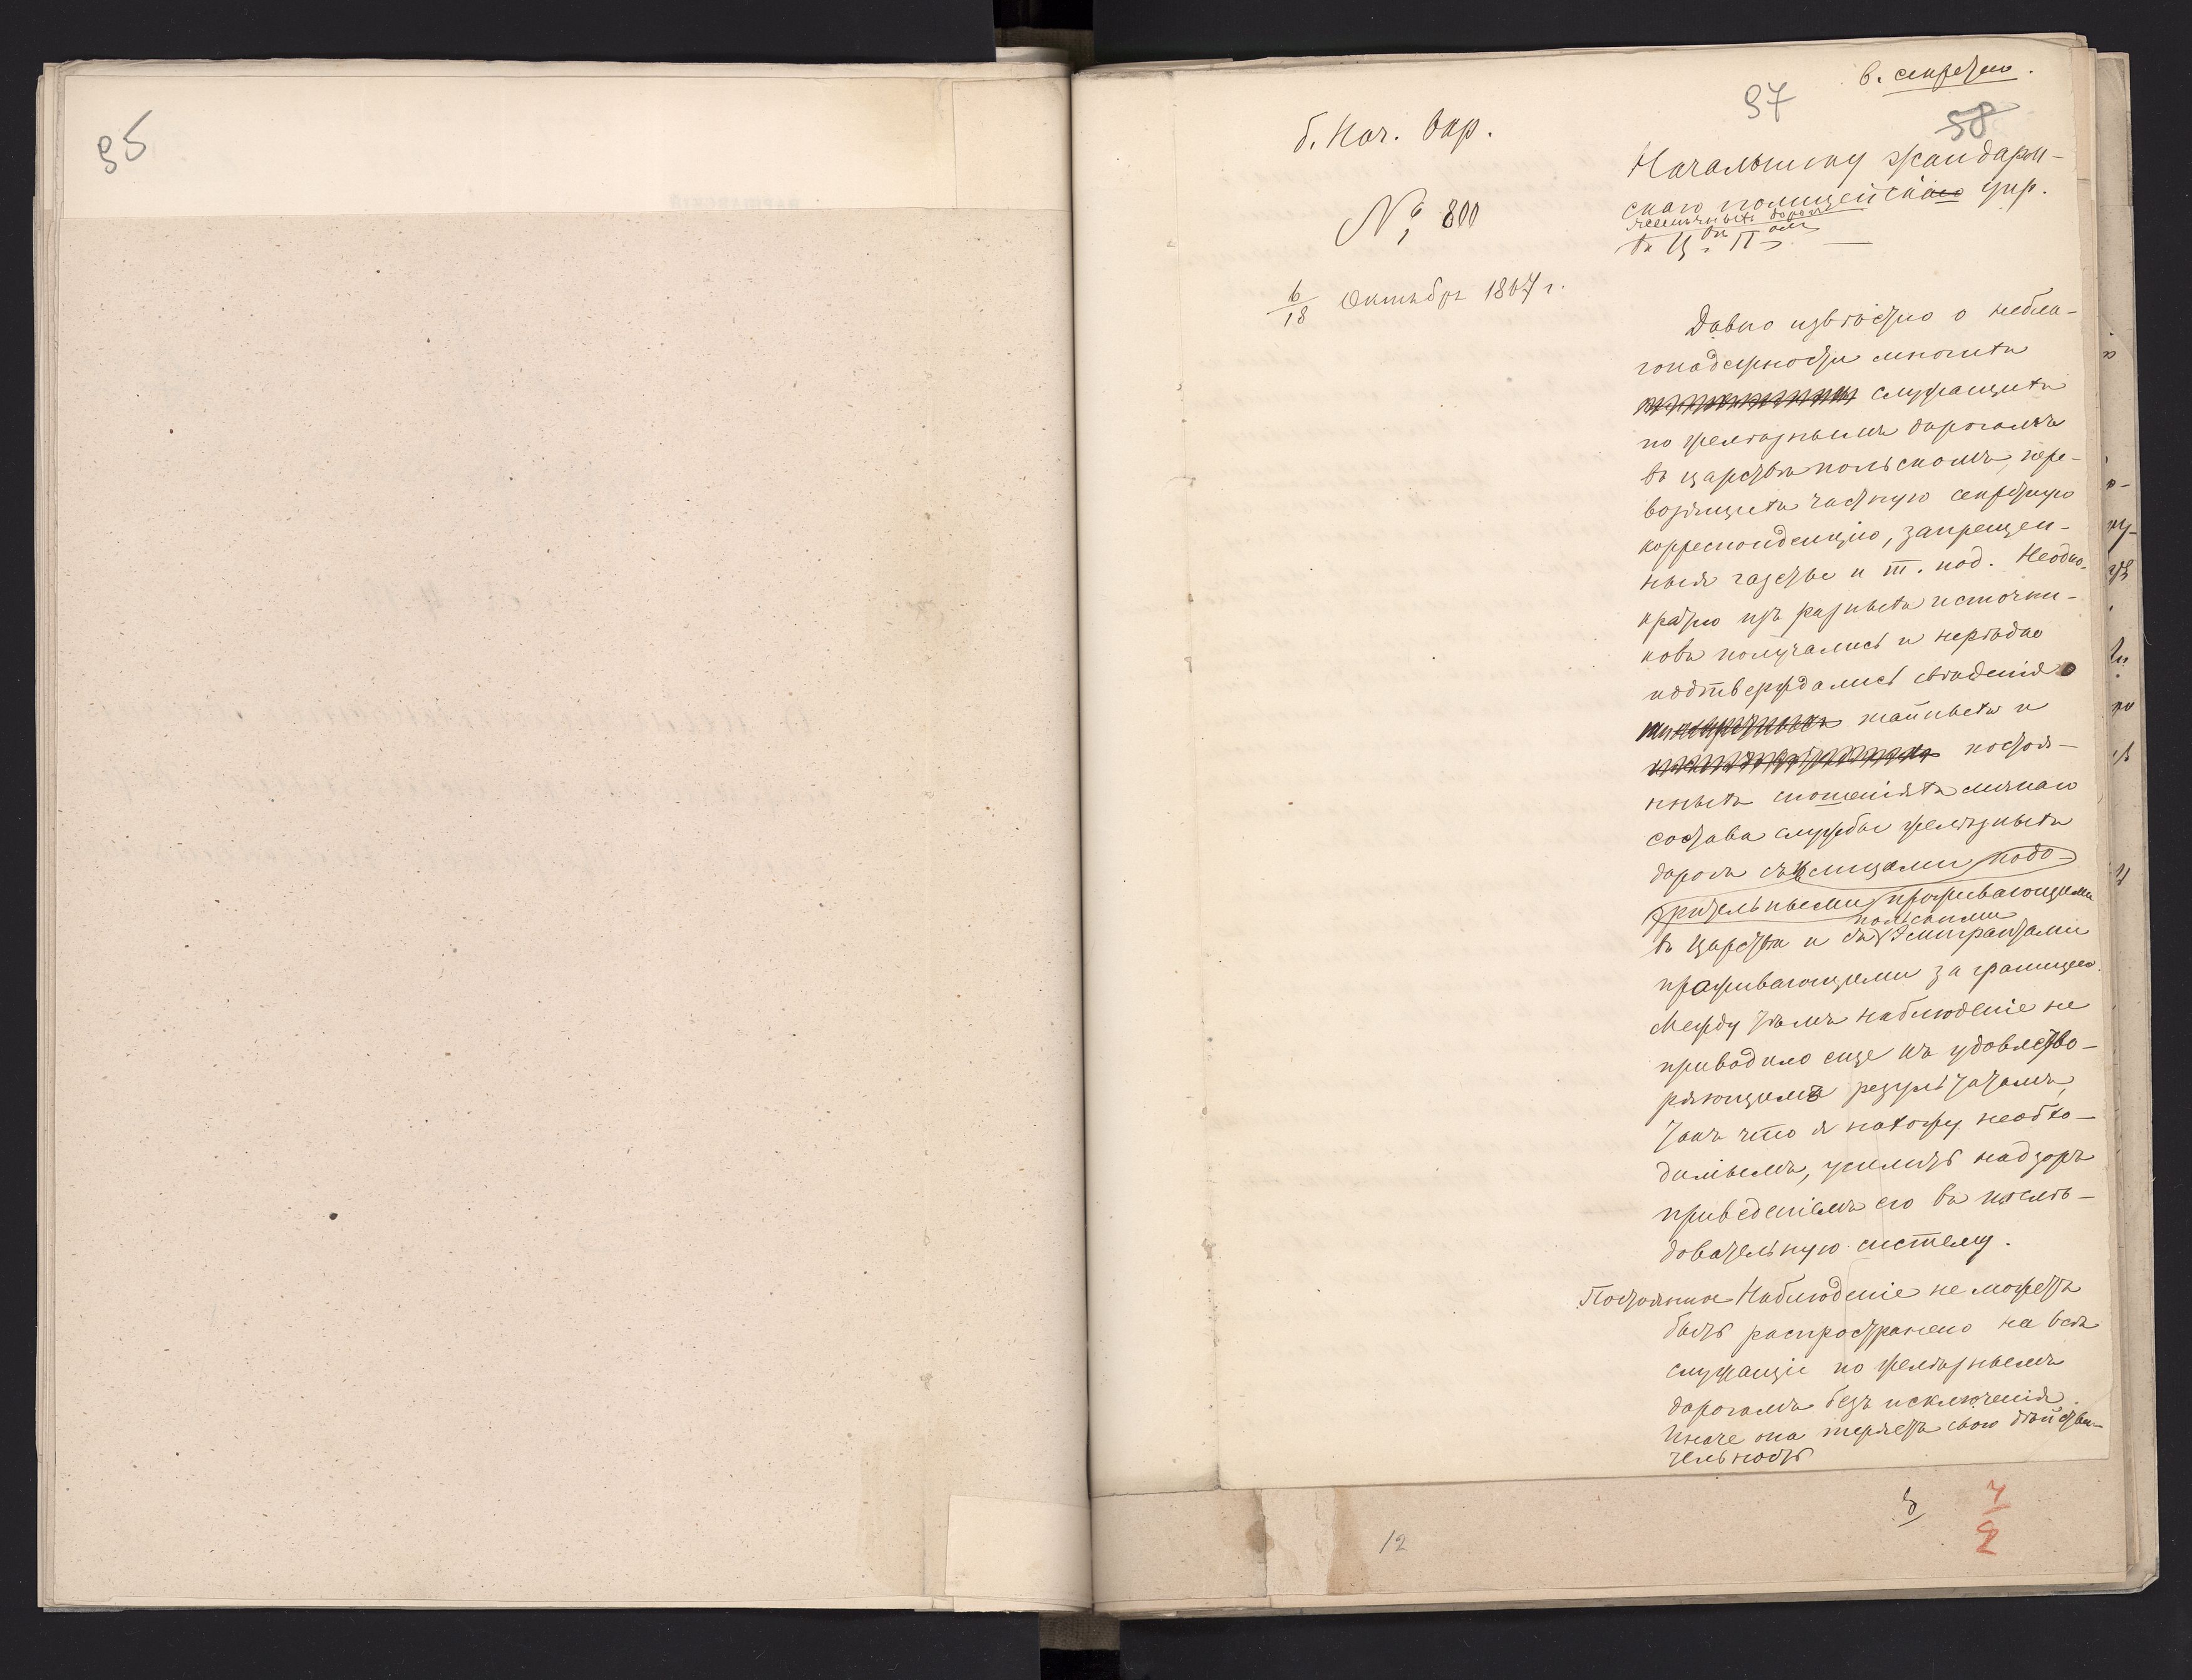 95
в. секретно.
97
58
б. Нач. Окр.
Начальнику жандарм-
скаго полицейскаго упр.
желѣзныхъ дорогъ
въ Ц. П.
№ 800
6/18 Октября 1867 г.
Давно извѣстно о небла-
гонадежности многихъ
служащихъ
по желѣзнымъ дорогамъ
въ царствѣ польскомъ, пере-
возящихъ частную секретную
корреспонденцію, запрещен-
ныя газеты и т. под. Неодно-
кратно изъ разныхъ источни-
ковъ получались и нерѣдко
подтверждались свѣденія о
тайныхъ и
постоя-
нныхъ сношеніяхъ личнаго
состава службы желѣзныхъ
дорогъ съ лицами подо-
зрительными проживающими
польскими
въ Царствѣ и съ эмигрантами
проживающими за границею.
Между тѣмъ наблюденіе не
приводило еще къ удовлетво-
ряющимъ результатамъ,
такъ что я нахожу необхо-
димымъ, усилить надзоръ
приведеніемъ его въ послѣ-
довательную систему.
Постоянное Наблюденіе не можетъ
быть распространено на всѣ
служащіе по желѣзнымъ
дорогамъ безъ исключенія.
Иначе она теряетъ свою дѣйстви-
тельность
12
3
4/2